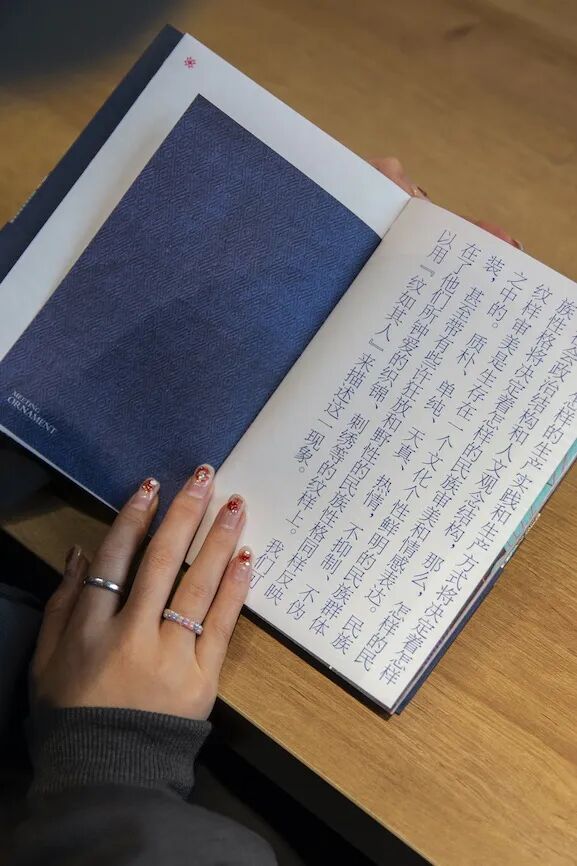 MEETING
ORNAMENT
样的生产实践和生产方式将决定着怎样
会政治结构和人文观念结构，那么，怎样的民
族性格将决定着怎样的民族审美和情感表达。民族
纹样审美是生存在一个文化个性鲜明的民族群体
之中的。质朴、单纯、天真、热情，不抑制、不伪
装，甚至带有些许狂放和野性的民族性格同样又映
在了他们所钟爱的织锦、刺绣等的纹样上。我们可
以用『纹如其人』来描述这一现象。